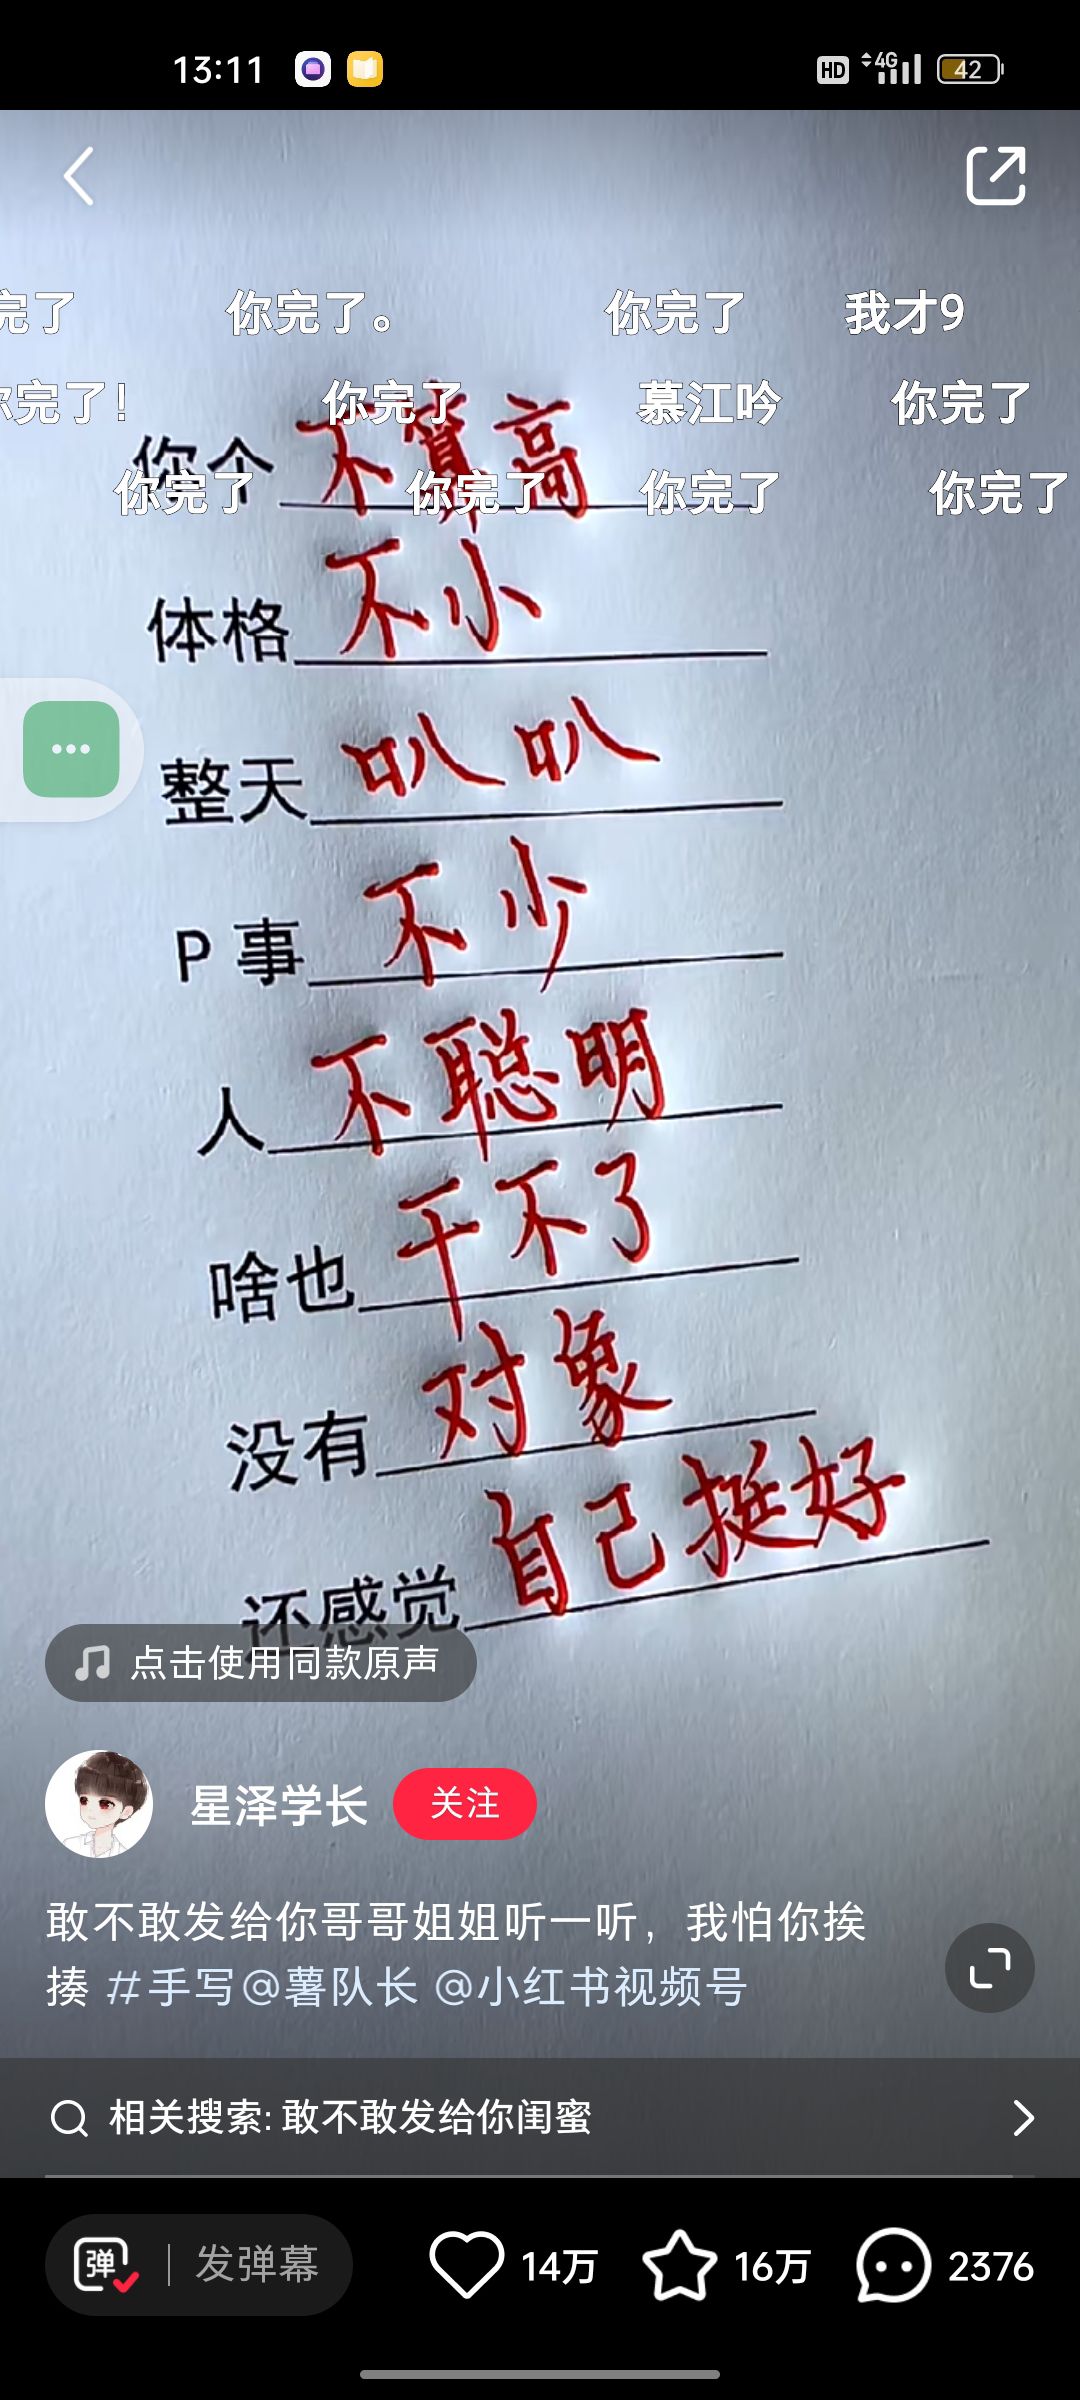 13:11 HD 4G 42
完了 你完了。 你完了 我才9
你完了! 你完了 慕江吟 你完了
你完了 你完了 你完了 你完了
你个不算高
体格不小
整天叭叭
P事不少
人不聪明
啥也干不了
没有对象
还感觉自己挺好
点击使用同款原声
星泽学长 关注
敢不敢发给你哥哥姐姐听一听，我怕你挨
揍 #手写@薯队长 @小红书视频号
相关搜索: 敢不敢发给你闺蜜
弹 发弹幕 14万 16万 2376